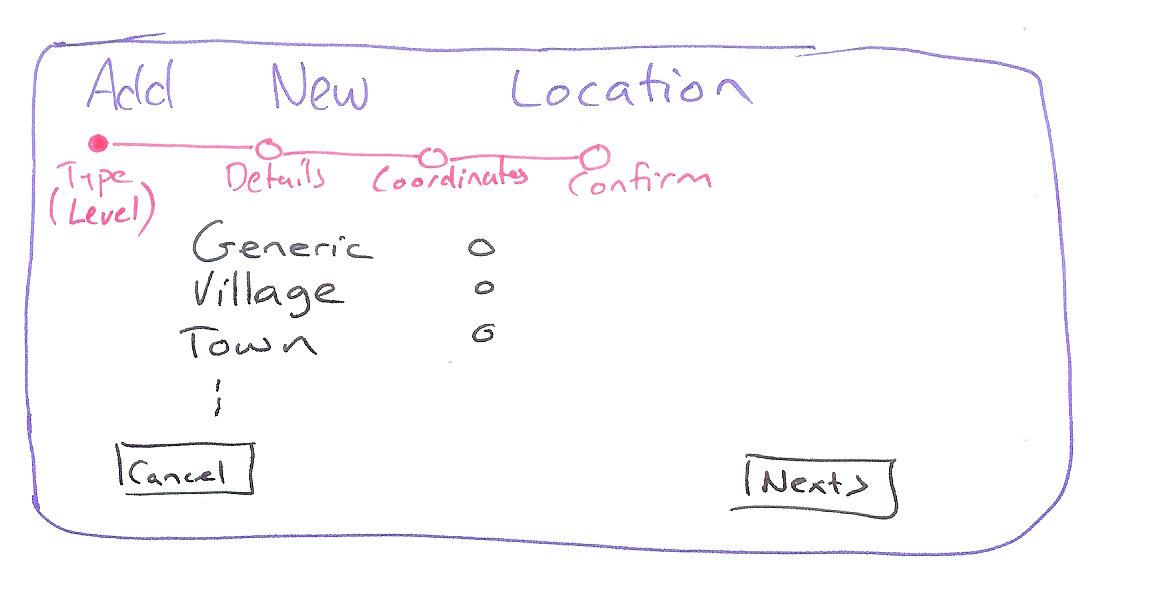 Add New Location
Type Details Coordinates Confirm
(Level)
Generic
Village
Town
Cancel Next>